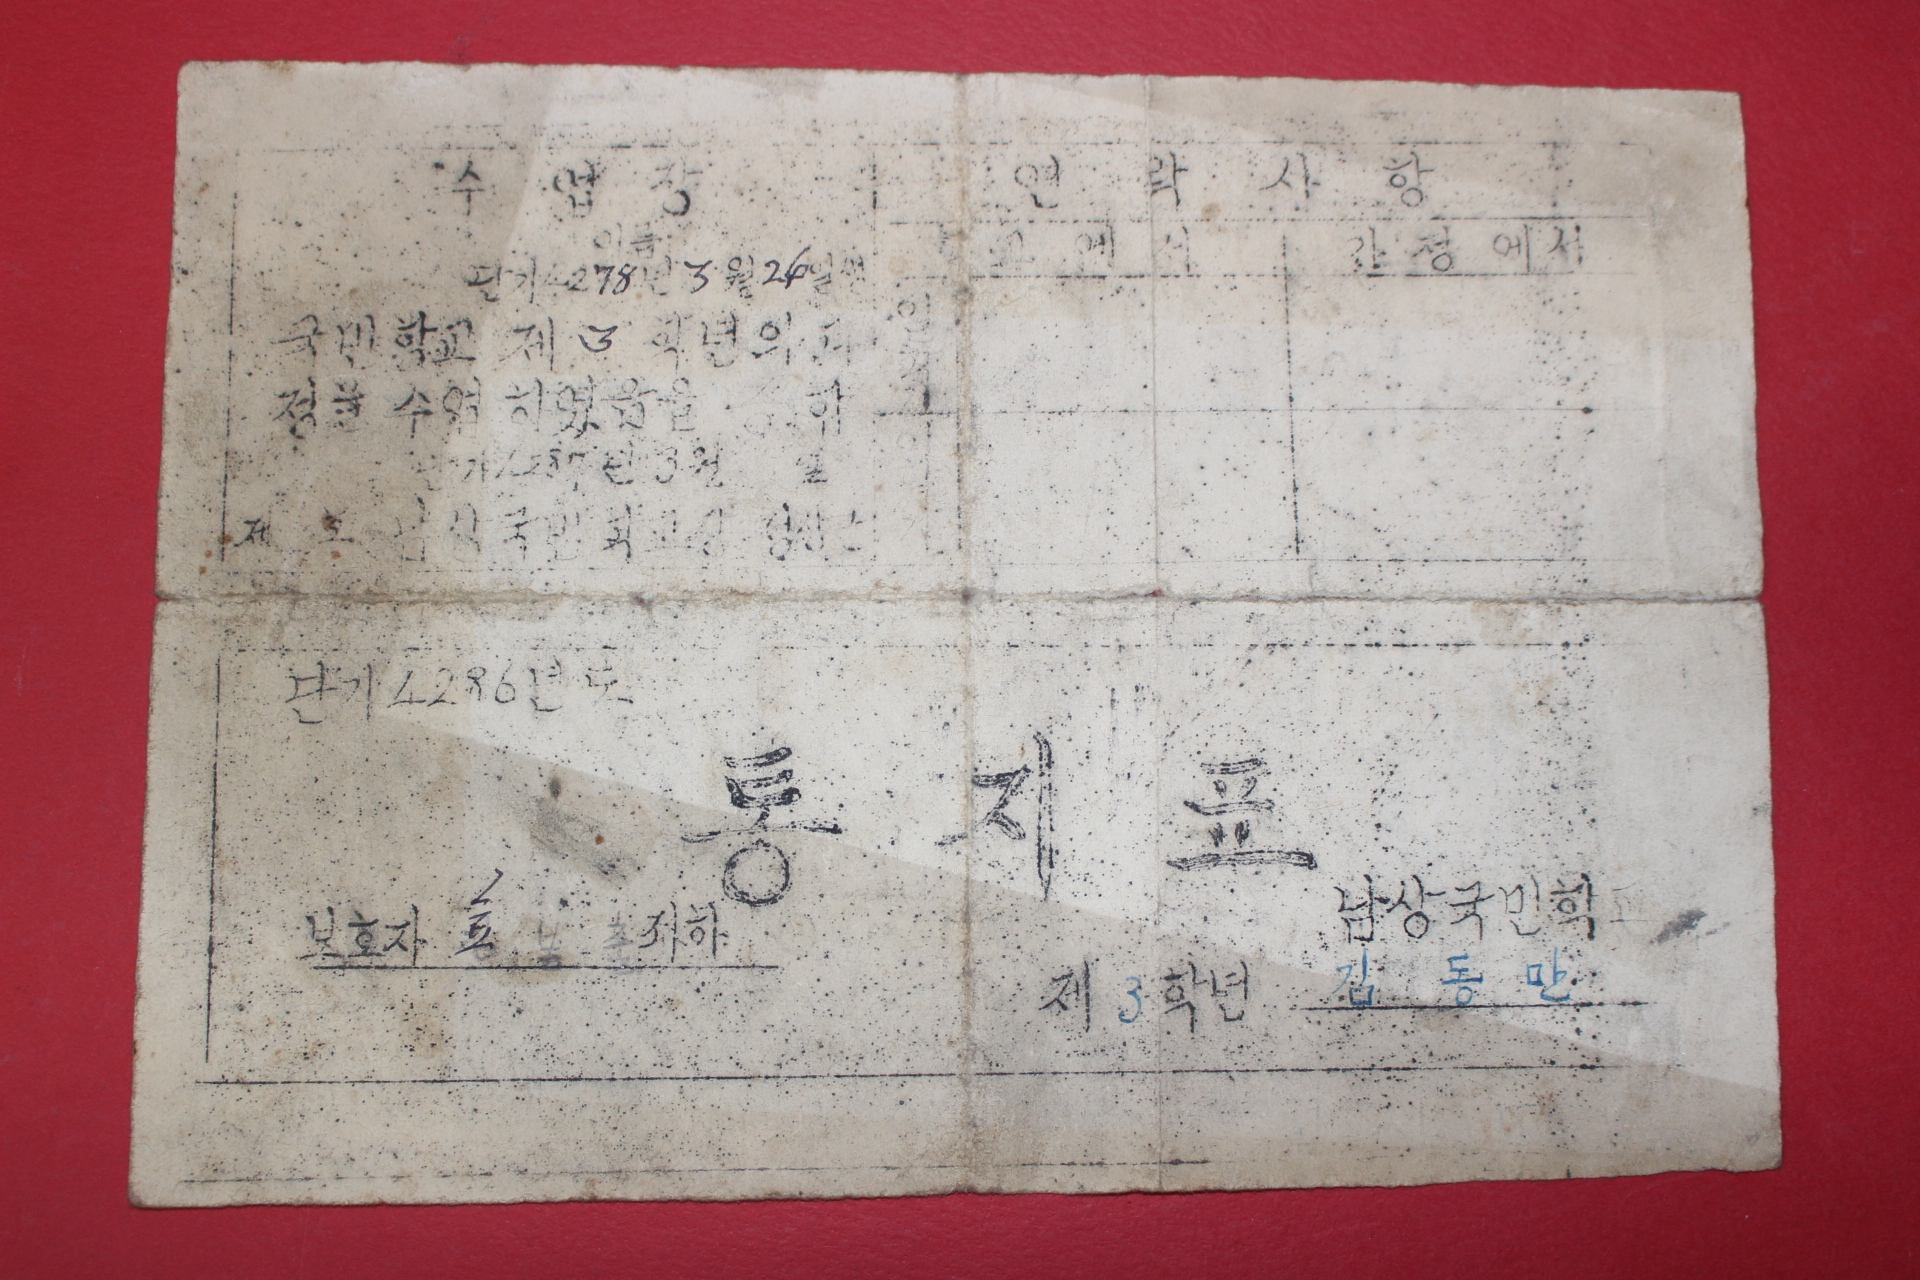 수업장
이름
단기4278년 3월 26일생
국민학교 제 3 학년의 과
정을 수업하였음을 증함
단기4287년 3월 일
제 호 남상국민학교장
연락사항
학교에서
가정에서
단기 4286년도
통지표
보호자 좌하
남상국민학교
제 3 학년 김동만